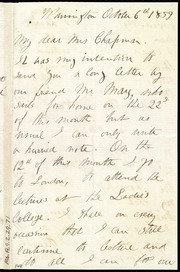 Warrington October 6th 1859
My dear Mrs Chapman.
It was my intention to
send you a long letter by
our friend Mr May, who
sets for home on the 22d
of this month but as
usual I can only write
a hurried note. On the
12th of this month I go
to London, to attend the
lectures at the Ladies
College. I shall on every
occasion that I can still
continue to lecture and
do all I can for our